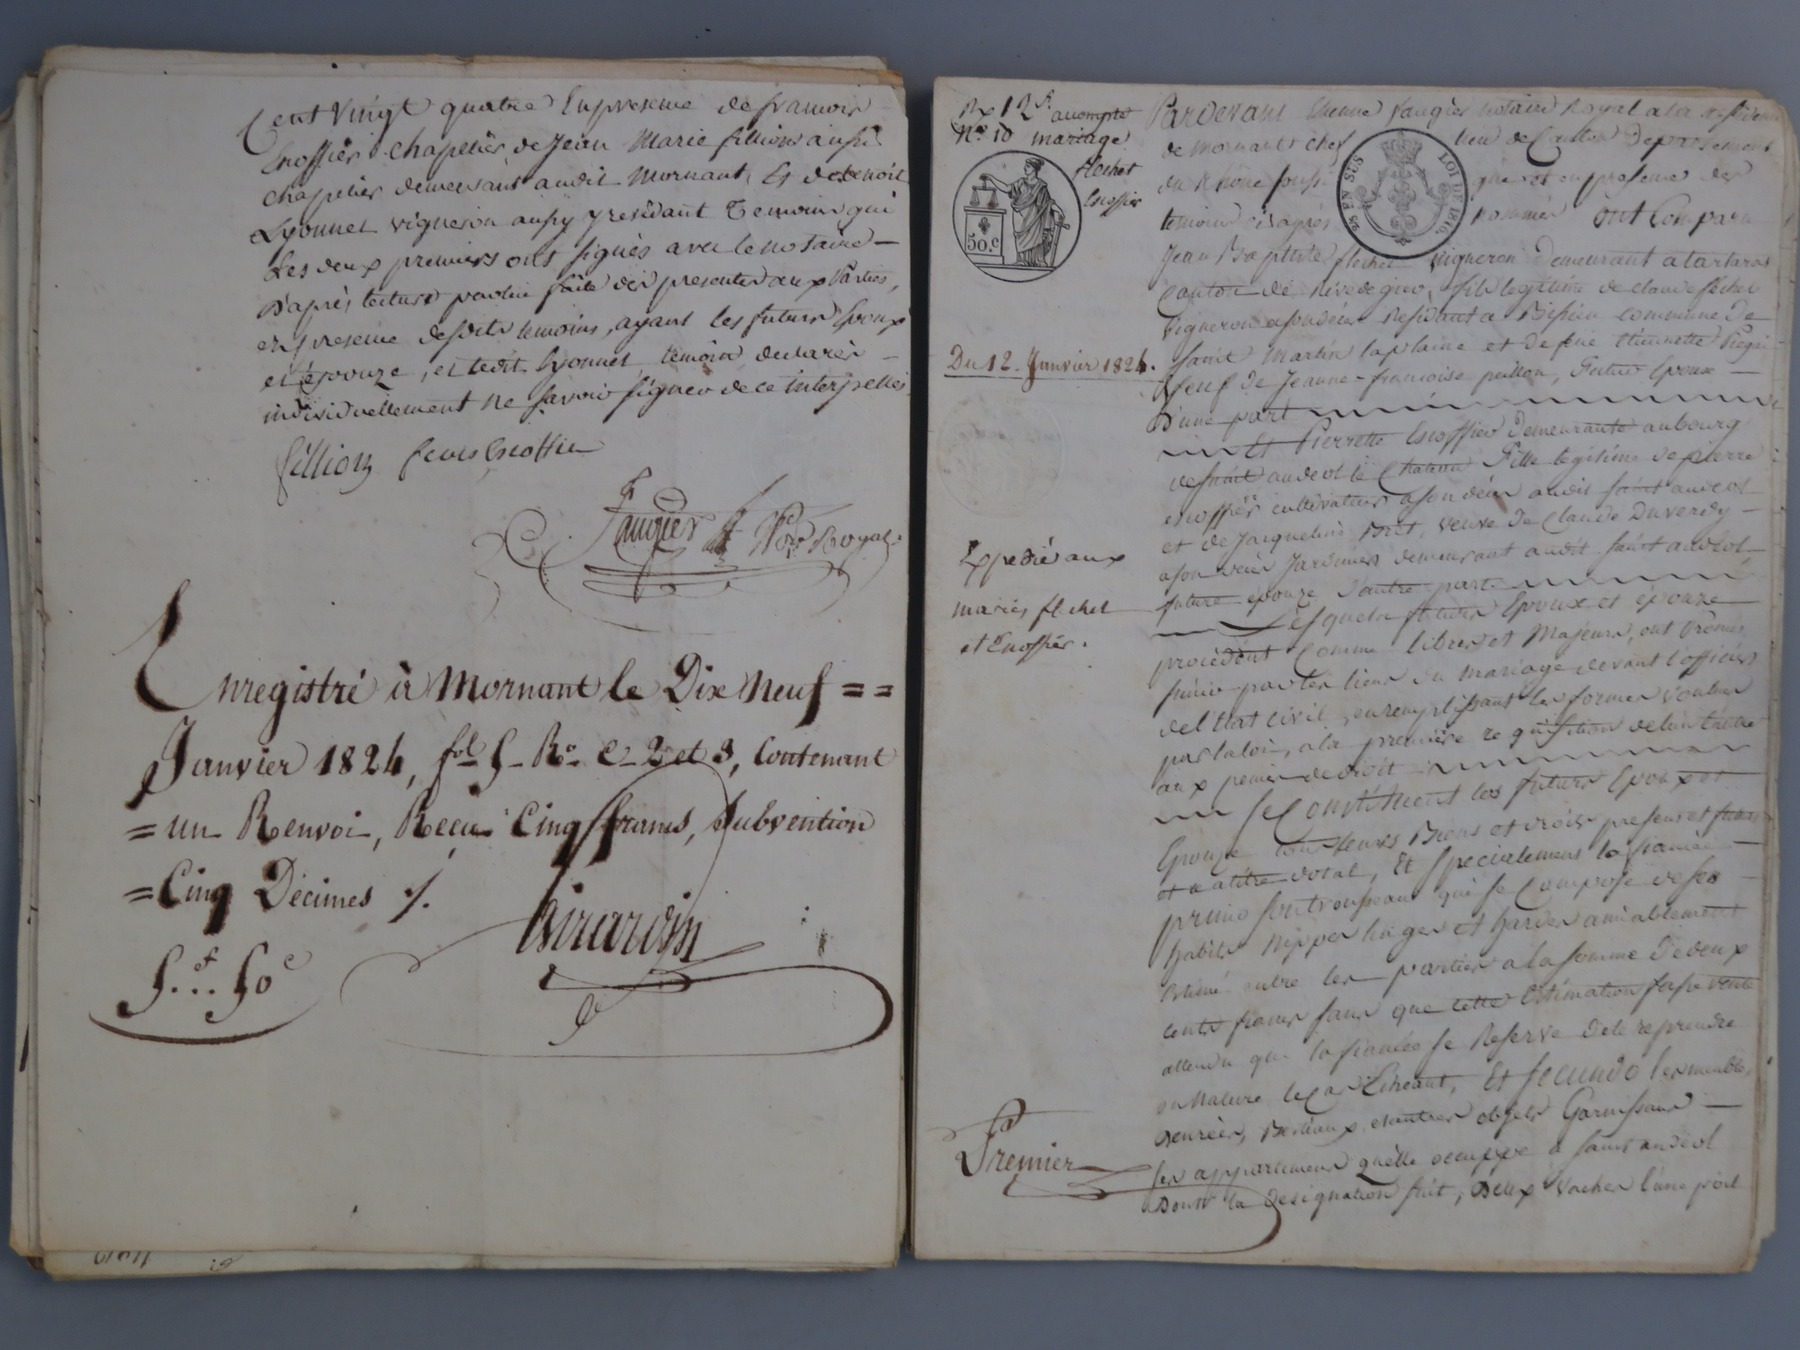 Cent vingt quatre En presence de francois
Escoffier chapelier de Jean Marie fillion aussi
chapelier demeurant audit Mornant, Et de benoit
Lyonnet vigneron aussy y residant Temoins qui
Les deux premiers ont signés avec le notaire —
D'après lecture par lui faite des presentes aux Parties,
en presence desdits temoins, ayant les futurs Epoux
et épouze, et ledit Lyonnet temoin declarés —
individuellement ne savoir signer de ce interpellés
fillion
Escoffier
Fauquier Nore Royal
Enregistré à Mornant le Dix Neuf ==
Janvier 1824, fol 5 Ro C 2 et 3, Contenant
= un Renvoi, Reçu Cinq francs, Subvention
= Cinq Décimes ./.
Girardin
5f..50c
Rx 12f acompte
No. 10 mariage
flechet
Escoffier
50.c
EN SUS
LOI DE 1816.
Du 12. Janvier 1824.
Expedié aux
mariés flechet
et Escoffier.
Premier
Pardevant Etienne Fauquier notaire Royal a la residence
de Mornant chef lieu de Canton Departement
du Rhone et en presence des
temoins ci après nommés ont Comparu
Jean Baptiste flechet vigneron Demeurant a tartaras
Canton de rive de gier, fils legitime de claude flechet
vigneron a son décès residant a Bissieu commune de
saint Martin la plaine et de feüe
veuf de Jeanne-francoise, futur Epoux —
D'une part
Et Pierrette Escoffier Demeurante au bourg
de saint andeol le Chateau Fille legitime de pierre
escoffier cultivateur a son décès audit saint andeol
et de Jacqueline, veuve De Claude Duverdy —
a son décès Jardinier demeurant audit saint andeol —
future epouze D'autre part
Lesquels futurs Epoux et epouze
procédant Comme libres et Majeurs, ont Promis
s'unir par les liens du mariage devant l'officier
de l'Etat civil, en remplissant les formes voulues
par la loi, a la première requisition de l'un l'autre
aux peines de droit
Se Constituent les futurs Epoux et
Epouze tous leurs Biens et droits presens et futurs
et a titre dotal, Et specialement la fiancée —
primo son trousseau qui se Compose de ses —
habits nippes linges et hardes amiablement
estimé entre les parties a la somme De deux
cents francs sans que cette Estimation fasse vente
attendu que la fiancée se Reserve de le reprendre
en Nature le Cas Echéant, Et secundo les meubles,
Denrées, Bestiaux, et autres objets Garnissant —
les appartemens quelle occuppe a saint andeol
Dont la designation suit, Deux vaches l'une poil